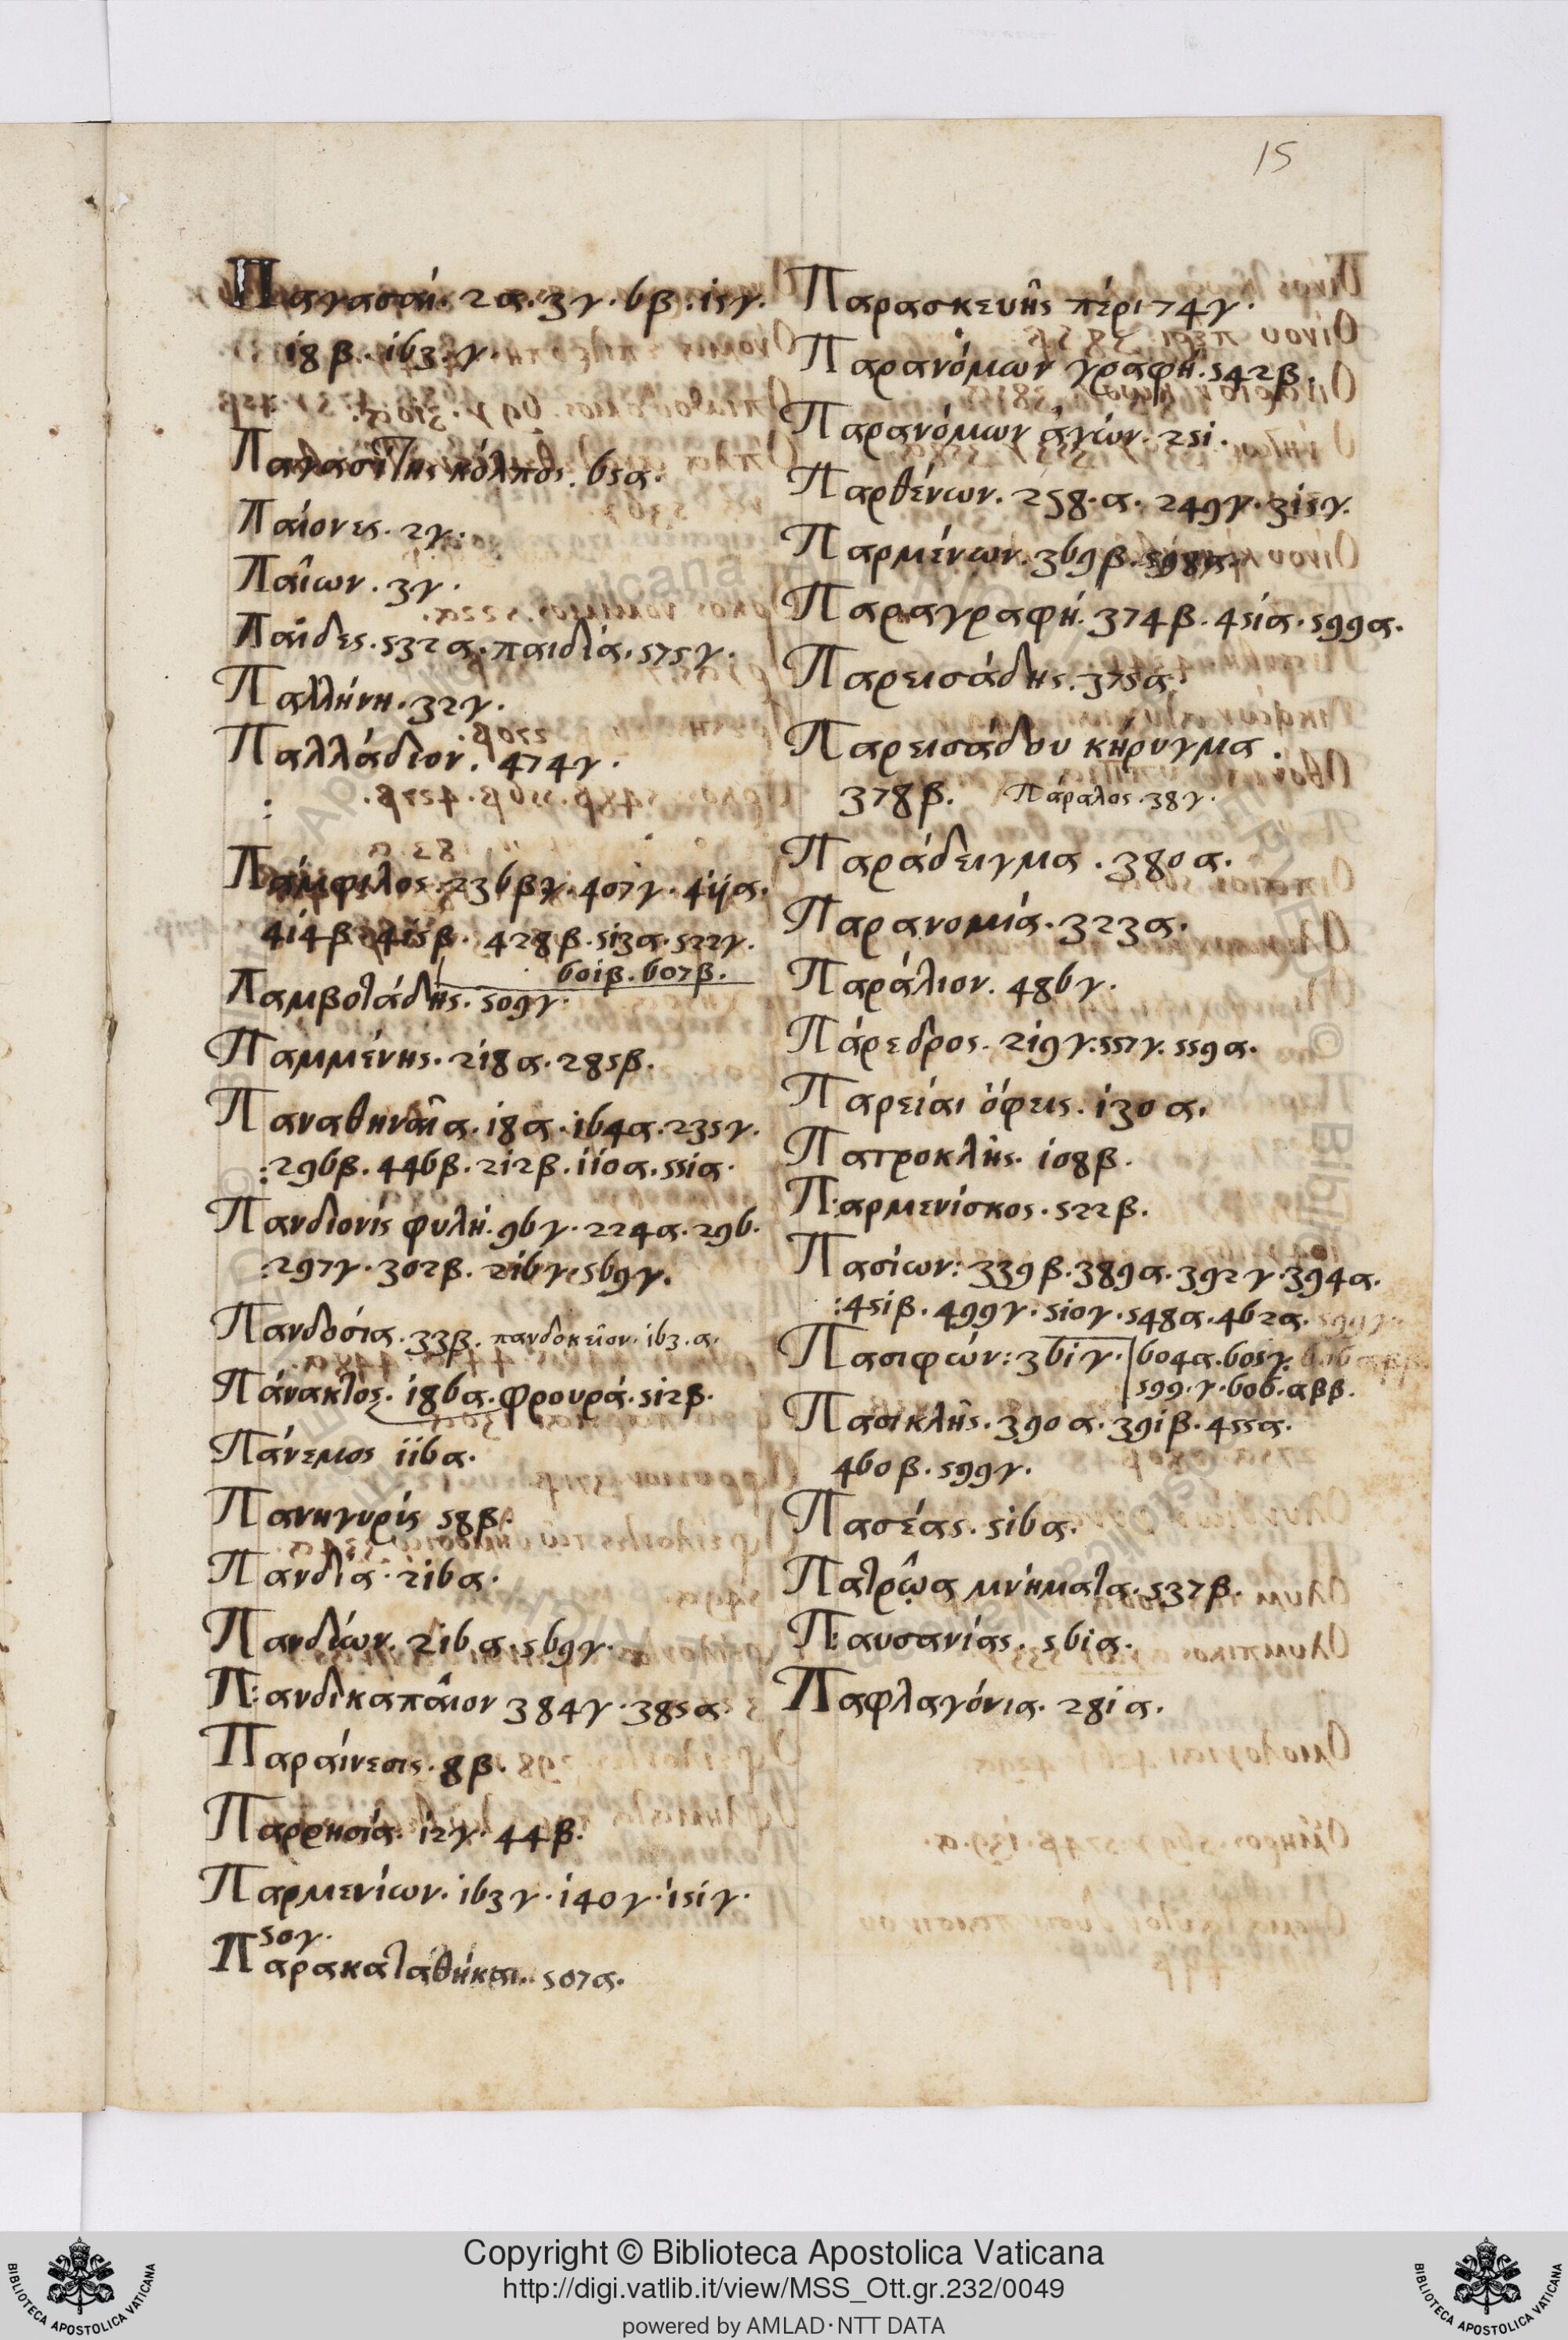 15
Παγασαί. 2α. 3γ. 6β. 15γ.
18β. 163. γ.
Παγασίτης κόλπος. 65α.
Παίονες. 2γ.
Παίων. 3γ.
Παίδες. 532α. παιδία. 575γ.
Παλλήνη. 32γ.
Παλλάδιον. 474γ.
Πάμφιλος. 236βγ. 407γ. 411α.
414β. 415β. 428β. 513α. 522γ.
601β. 607β.
Παμβοτάδης. 509γ.
Παμμένης. 218α. 285β.
Παναθηναῖα. 18α. 164α. 235γ.
:296β. 446β. 212β. 110α. 551α.
Πανδιονίς φυλή. 96γ. 224α. 296.
:297γ. 302β. 216γ. 569γ.
Πανδοσία. 33β. πανδοκεῖον. 163. α.
Πάνακτος. 186α. φρουρά. 512β.
Πάνεμος 116α.
Πανηγυρίς 58β.
Πανδία. 216α.
Πανδίων. 216α. 569γ.
Π:ανδικαπαῖον 384γ. 385α.
Παραίνεσις. 8β.
Παρρησία. 12γ. 44β.
Παρμενίων. 163γ. 140γ. 151γ.
50γ.
Παρακαταθήκαι. 507α.
Παρασκευῆς πέρι 74γ.
Παρανόμων γραφή. 542β.
Παρανόμων ἀγών. 251.
Παρθένων. 258. α. 249γ. 315γ.
Παρμένων. 369β. 598α.
Παραγραφή. 374β. 451α. 599α.
Παρεισάδης. 375α.
Παρεισάδου κήρυγμα.
378β. Πάραλος. 38γ.
Παράδειγμα. 380α.
Παρανομία. 323α.
Παράλιον. 486γ.
Πάρεδρος. 219γ: 557γ. 559α.
Παρείαι ὄφεις. 130α.
Πατροκλῆς. 108β.
Π.αρμενίσκος. 522β.
Πασίων: 339β. 389α. 392γ. 394α.
:451β. 499γ. 510γ. 548α. 462α. 599γ.
Πασιφών: 361γ. 604α. 605γ.
599. γ. 606. αββ.
Πασικλῆς. 390α. 391β. 455α.
460β. 599γ.
Πασέας. 516α.
Πατρῷα μνήματα. 537β.
Π:αυσανίας. 561α.
Παφλαγόνια. 281α.
Copyright © Biblioteca Apostolica Vaticana
http://digi.vatlib.it/view/MSS_Ott.gr.232/0049
powered by AMLAD·NTT DATA
BIBLIOTECA APOSTOLICA VATICANA
BIBLIOTECA APOSTOLICA VATICANA